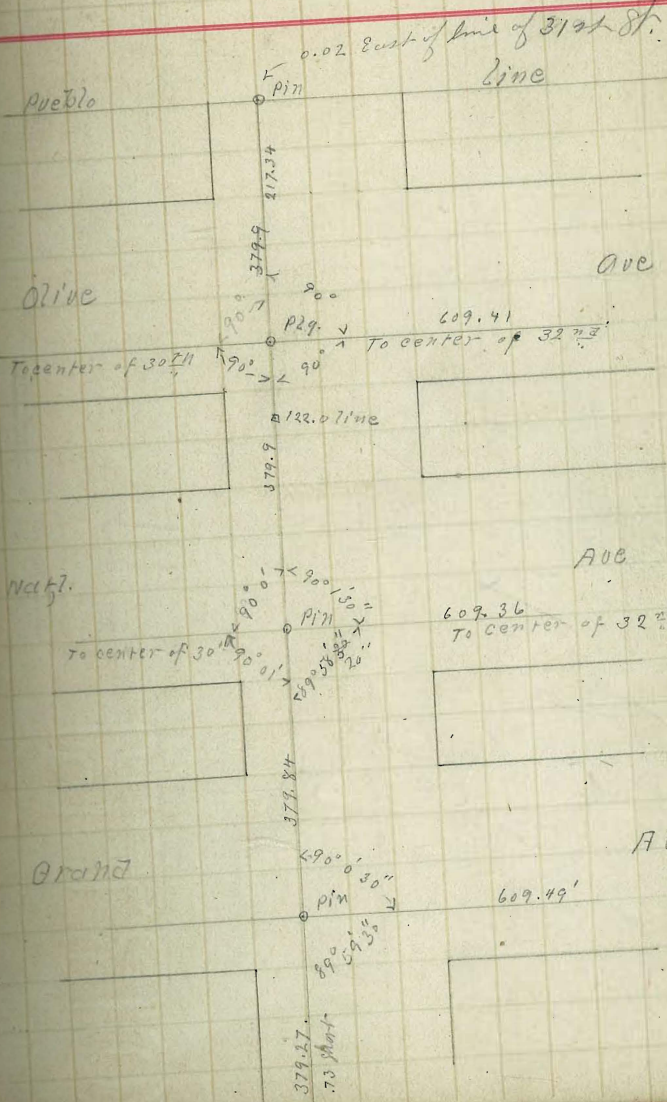 0.02 East of line of 31st St.
Pueblo
Pin
line
217.34
379.9
Olive
Ave
90°
90°
Plg.
609.41
To center of 30th
To center of 32nd
90°
90°
122.0 line
379.9
Natl.
Ave
90° 0'
90° 1' 30"
Pin
609.36
To center of 30
To center of 32n
90° 01'
89° 58'
20"
379.84
Grand
A
90° 0' 30"
Pin
609.49'
89° 59' 30
379.27
.73 short